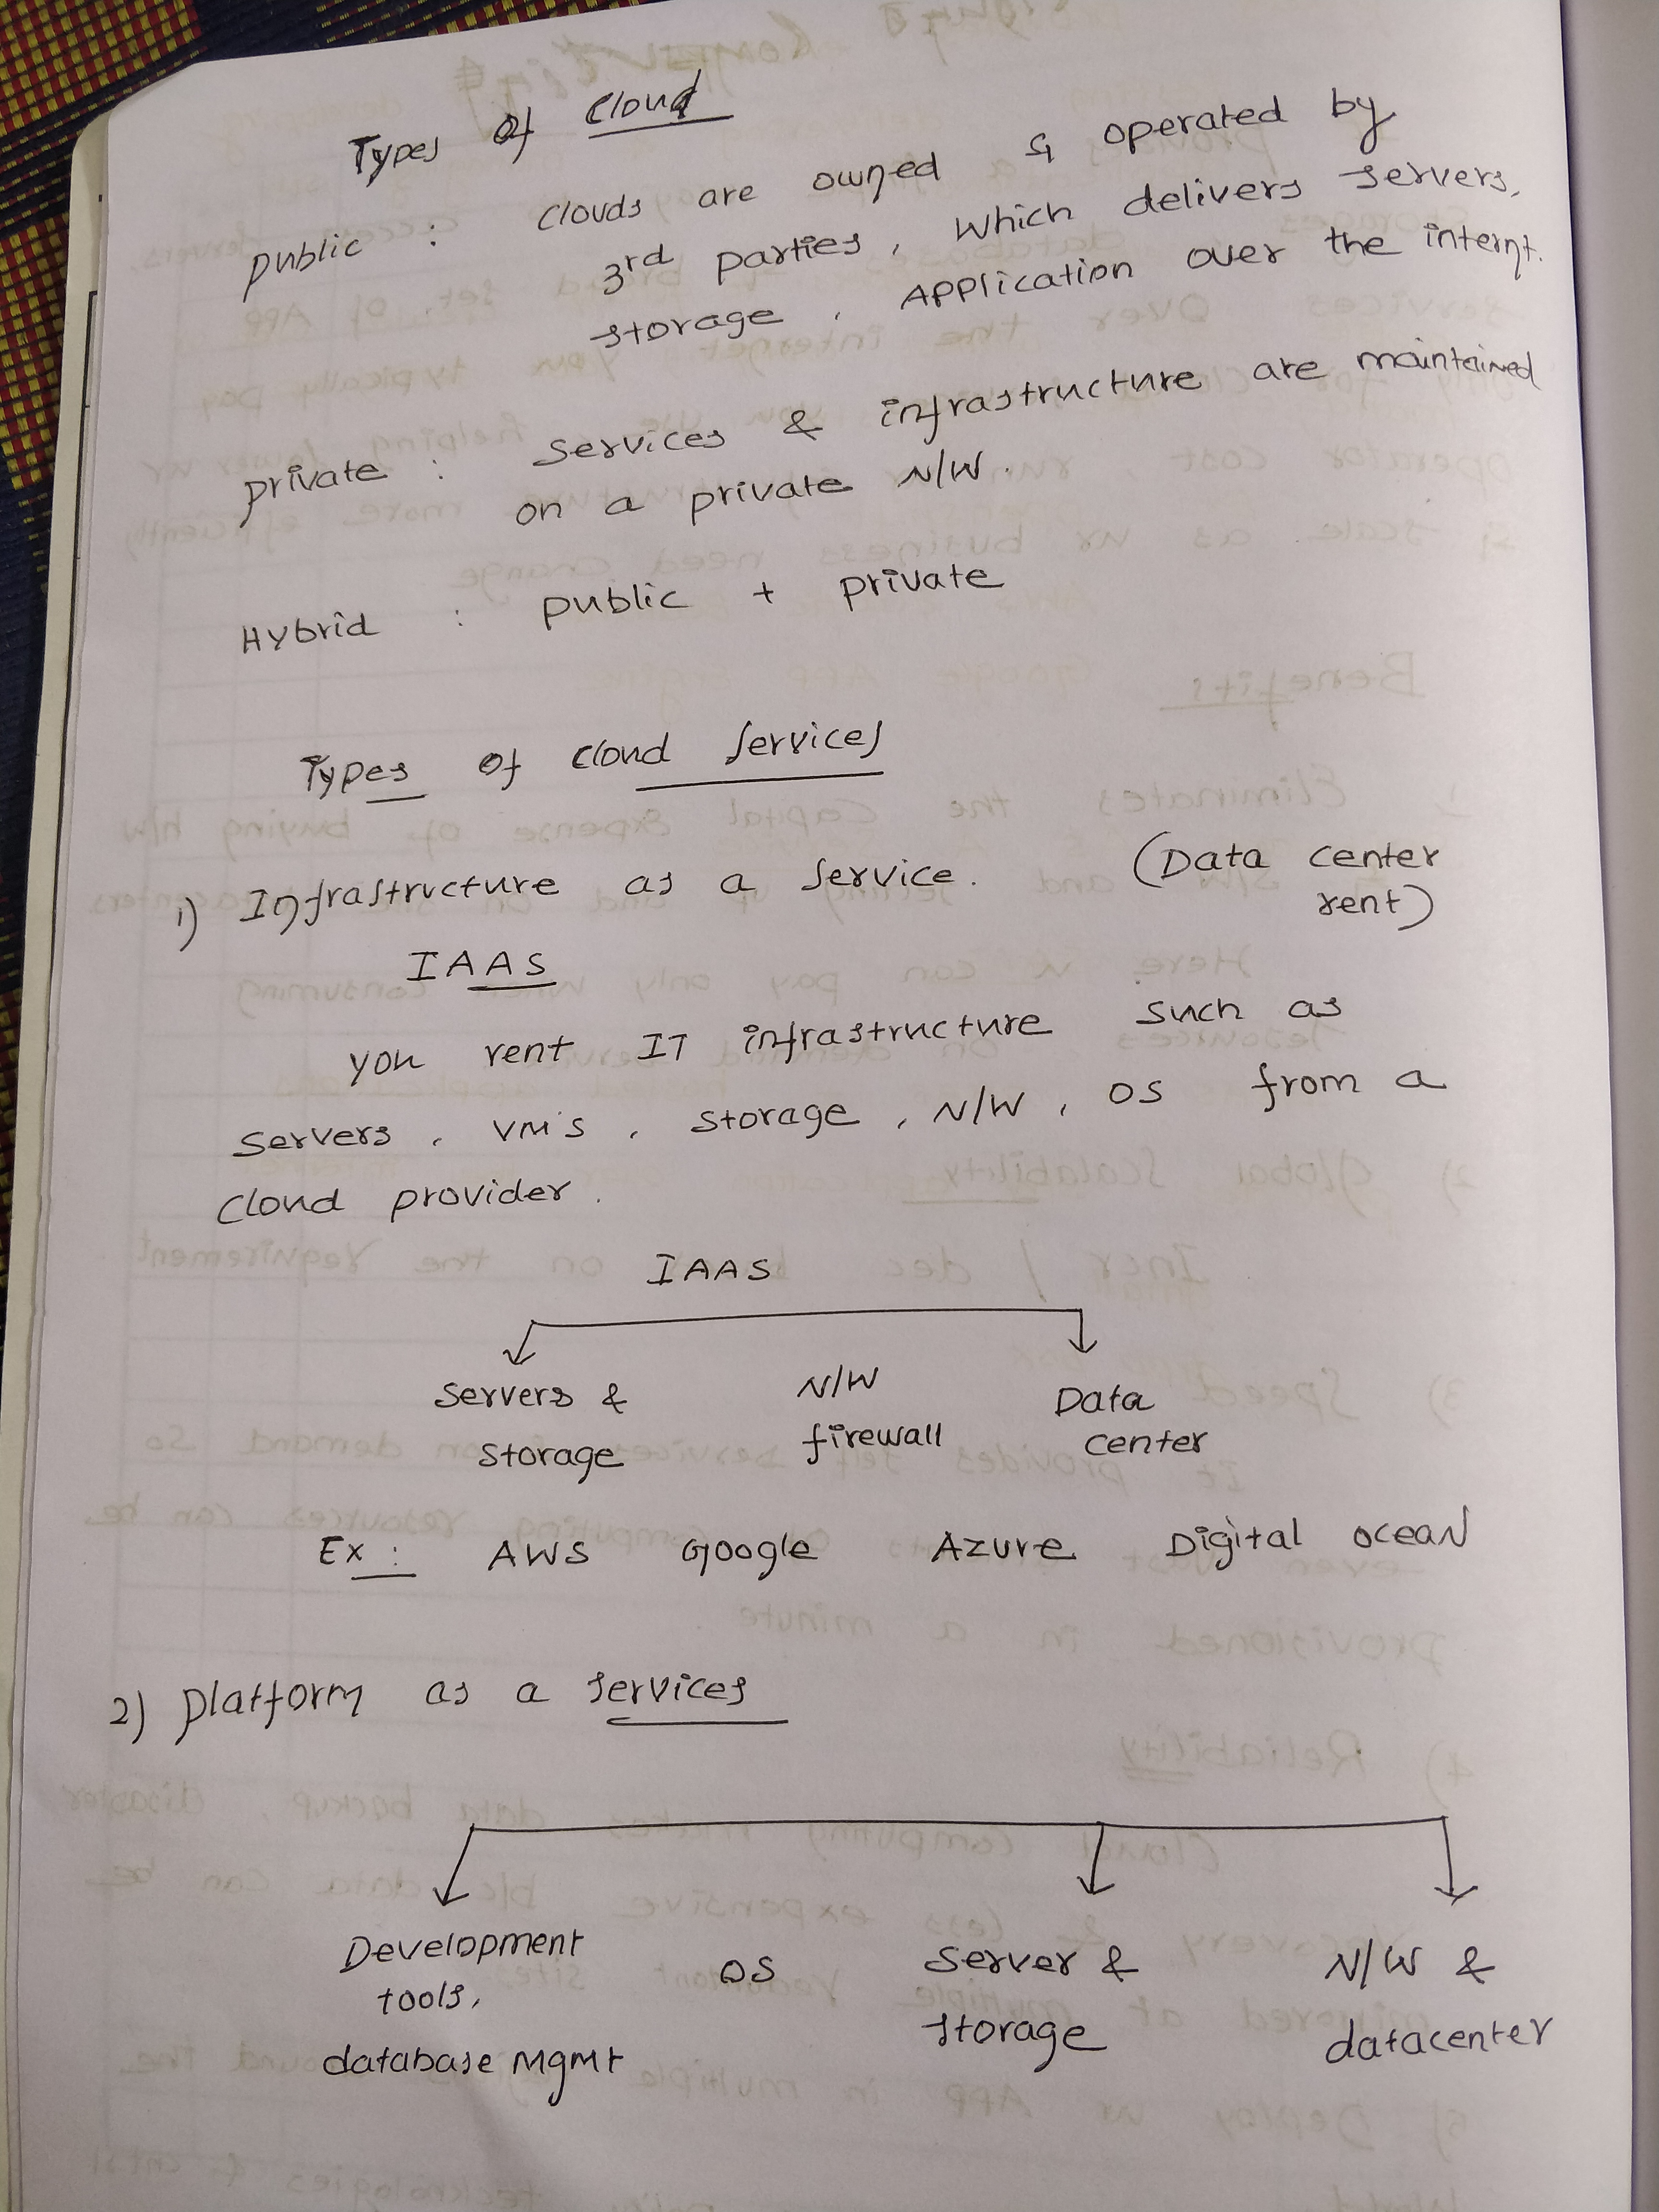 Types of Cloud
public : Clouds are owned & operated by
3rd parties, which delivers servers,
storage, Application over the internt.
private : Services & infrastructure are maintained
on a private N/W.
Hybrid : public + private
Types of Cloud Services
1) Infrastructure as a Service. (Data center
rent)
IAAS
you rent IT infrastructure such as
servers, VM's, storage, N/W, OS from a
cloud provider.
IAAS
Servers & N/W Data
Storage firewall center
Ex: AWS Google Azure Digital ocean
2) platform as a services
Development OS Server & N/W &
tools, storage datacenter
database Mgmt